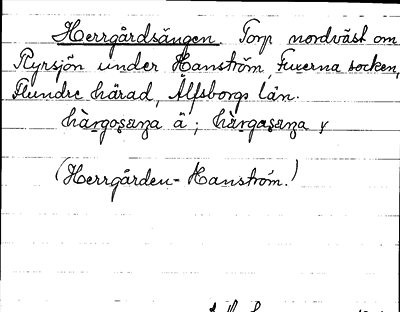 Herrgårdsängen. Torp nordväst om
Ryrsjön under Hanström, Fuxerna socken,
Flundre härad, Älfsborgs län.
hàrgosæŋa ä; hàrgasæŋa y
(Herrgården - Hanström.)